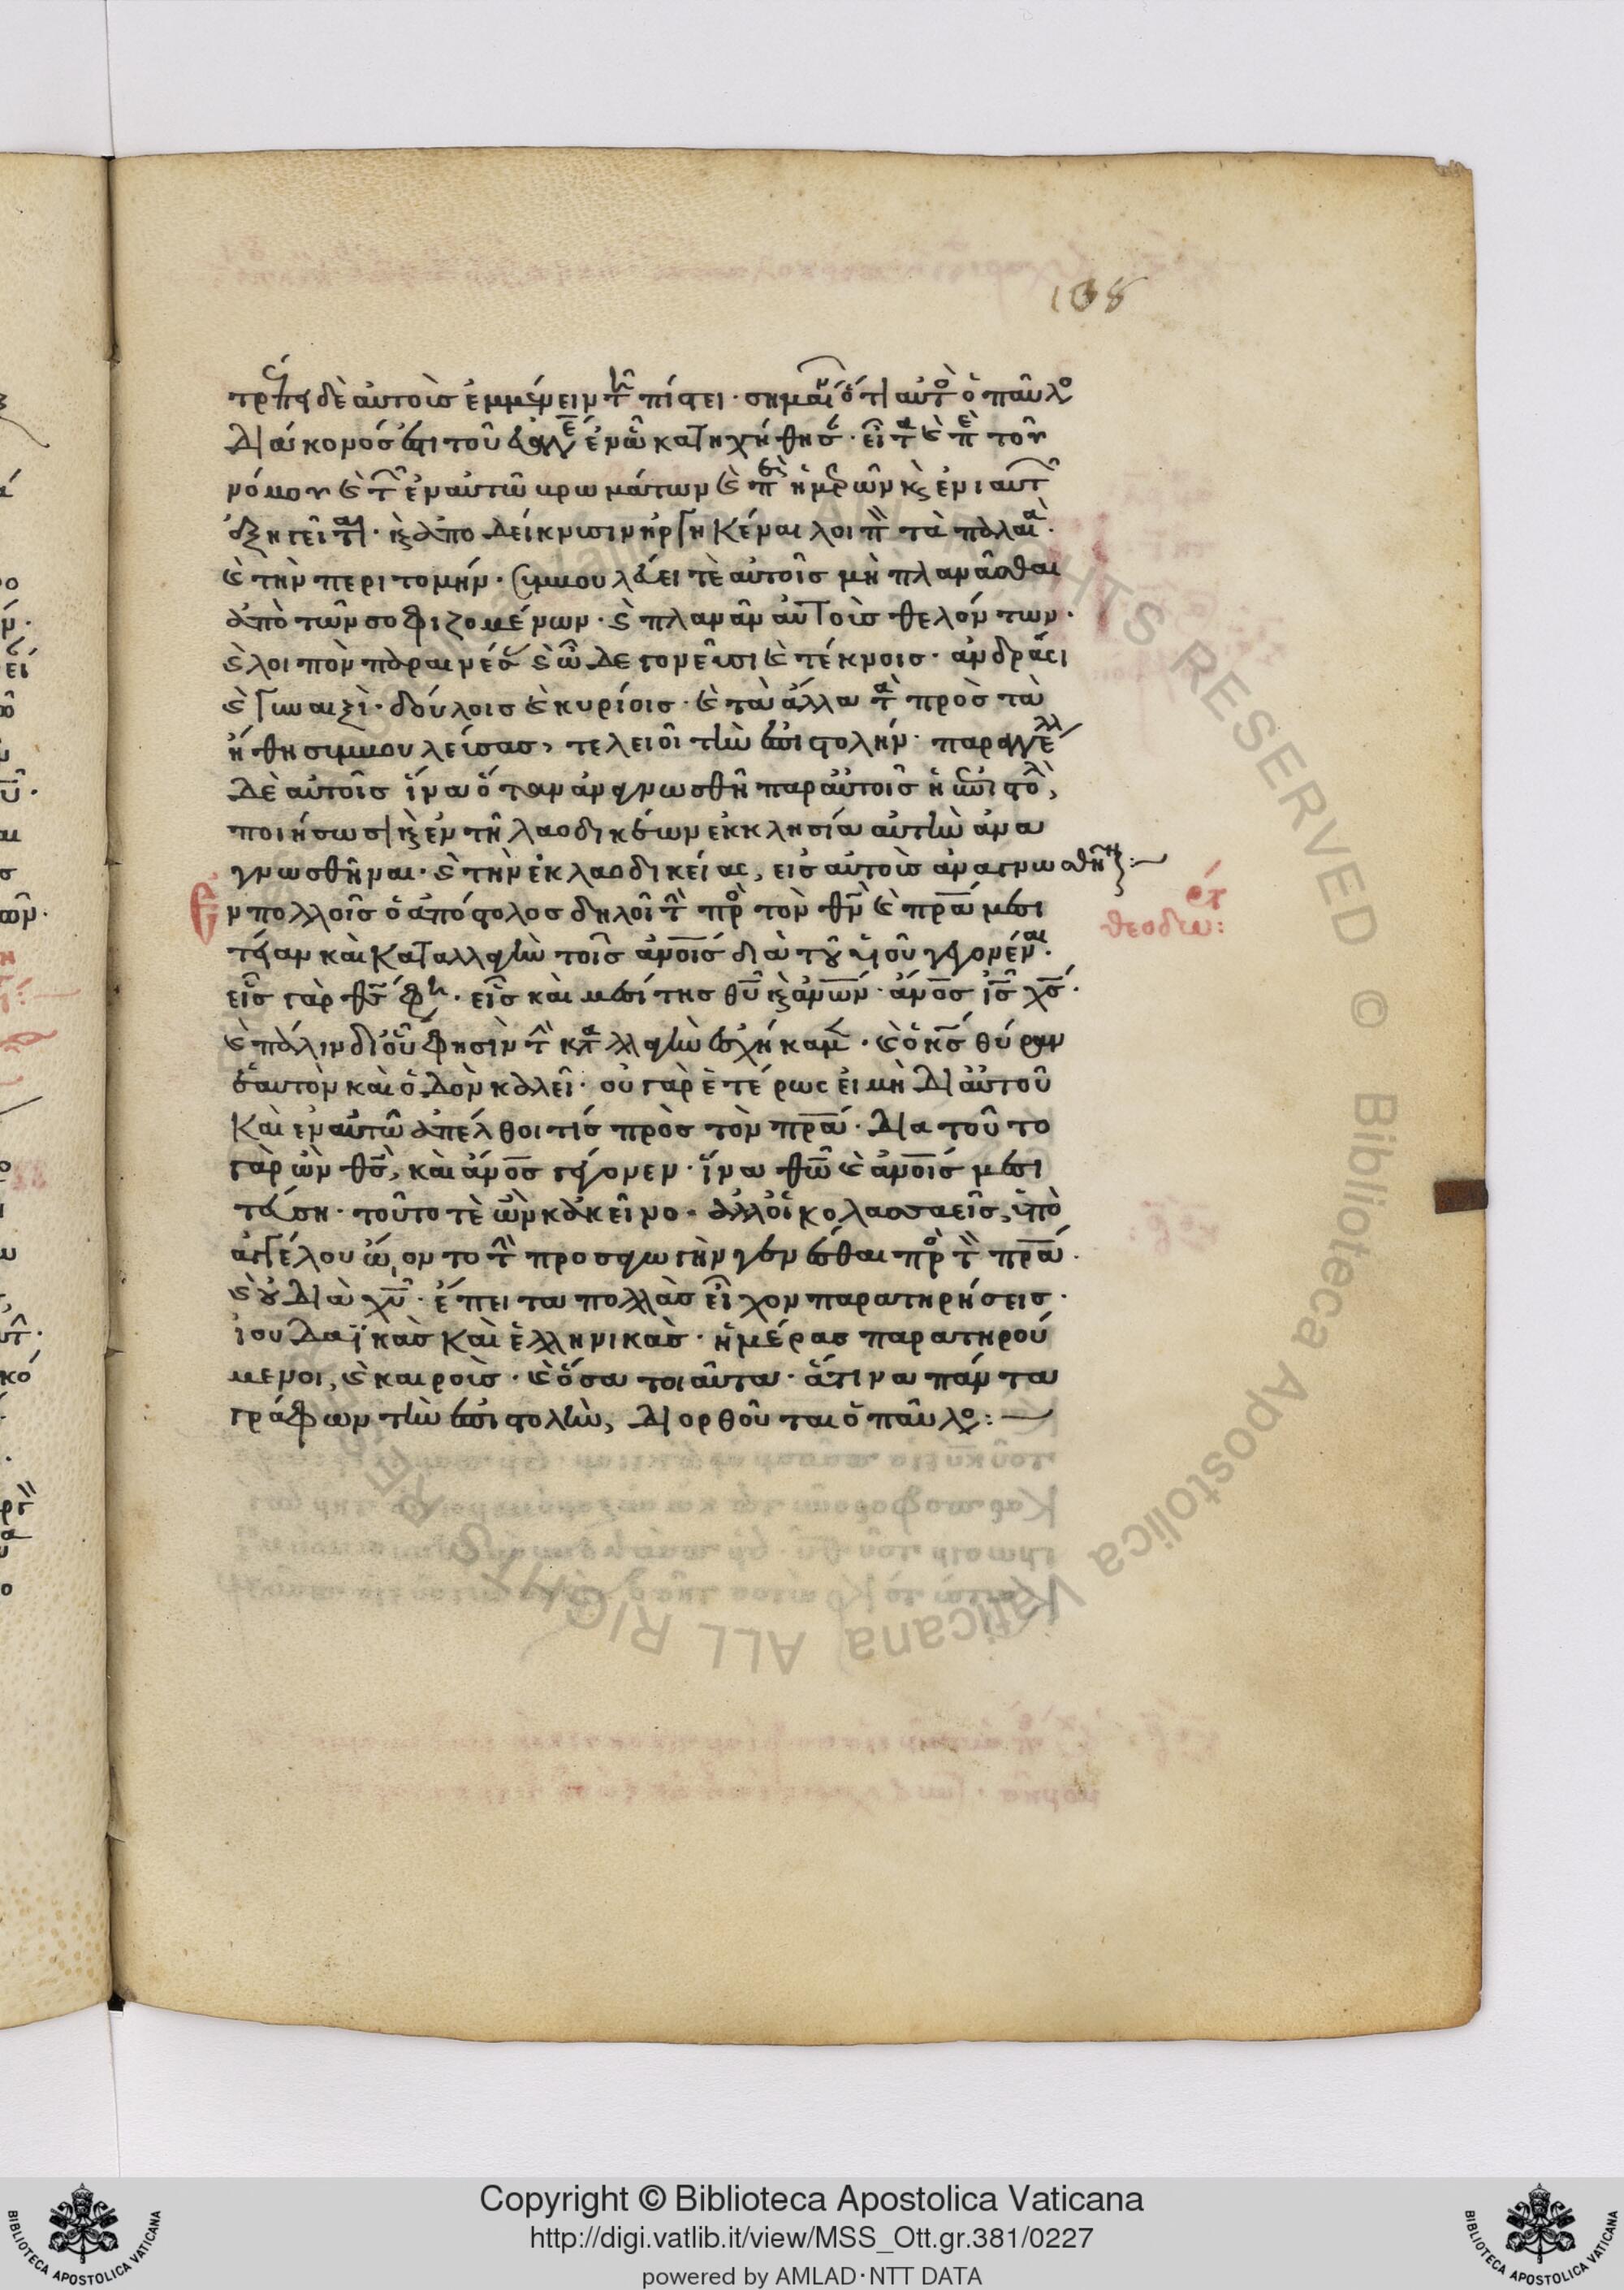 108
τρέπει δὲ αὐτοὺς ἐμμένειν τῇ πίστει· σημαίνει ὅτι αὐτὸς ὁ παῦλος
διάκονός ἐστι τοῦ εὐαγγελίου ἐν ᾧ κατηχήθησαν· εἶτα καὶ περὶ τοῦ
νόμου καὶ τῶν ἐν αὐτῷ βρωμάτων καὶ περὶ ἡμερῶν καὶ ἐνιαυτῶν
ἐξηγεῖται· καὶ ἀποδείκνυσιν ἠργηκέναι λοιπὸν τὰ παλαιά·
καὶ τὴν περιτομήν· συμβουλεύει τὲ αὐτοῖς μὴ πλανᾶσθαι
ἀπὸ τῶν σοφιζομένων· καὶ πλανᾶν αὐτοὺς θελόντων·
καὶ λοιπὸν παραινέσας καὶ ὧδε γονεῦσι καὶ τέκνοις· ἀνδράσι
καὶ γυναιξὶ· δούλοις καὶ κυρίοις· καὶ τὰ ἄλλα τὰ πρὸς τὰ
ἤθη συμβουλεύσας, τελειοῖ τὴν ἐπιστολήν· παραγγέλλει
δὲ αὐτοῖς ἵνα ὅταν ἀναγνωσθῇ παρ αὐτοῖς ἡ ἐπιστολὴ,
ποιήσωσι καὶ ἐν τῇ λαοδικέων ἐκκλησία αὐτὴν ἀνα
γνωσθῆναι· καὶ τὴν ἐκ λαοδικείας, εἰς αὐτοὺς ἀναγνωσθῆναι:—
ἔτ
θεοδω:
Ἐν πολλοῖς ὁ ἀπόστολος δηλοῖ τὴν πρὸς τὸν θν καὶ πρα μεσι
τείαν καὶ καταλλαγὴν τοῖς ανοις διὰ τοῦ υἱοῦ γεγονέναι·
εἷς γὰρ θς φη· εἷς καὶ μεσίτης θυ καὶ ανων· ανος ις χς·
καὶ πάλιν δι οὗ φησὶν τὴν καταλλαγὴν ἐσχήκαμεν· καὶ ὁ κς θύραν
ἑαυτὸν καὶ ὁδὸν καλεῖ· οὐ γὰρ ἑτέρως εἰ μὴ δι αὐτοῦ
καὶ ἐν αὐτῷ ἀπέλθοι τίς πρὸς τὸν πρα· διὰ τοῦτο
γὰρ ὢν θς, καὶ ανος γέγονεν· ἵνα θω καὶ ανοις μεσι
τεύση· τοῦτο τὲ ὢν κἀκεῖνο· ἀλλ οἱ κολασσαεῖς, ὑπὸ
ἀγγέλου ᾤοντο τὴν προσαγωγὴν γενέσθαι πρὸς τὸν πρα·
καὶ οὐ διὰ χυ· ἔπειτα πολλὰς εἶχον παρατηρήσεις·
ἰουδαϊκὰς καὶ ἑλληνικὰς· ἡμέρας παρατηρού
μενοι, καὶ καιροὺς· καὶ ὅσα τοιαῦτα· ἅτινα πάντα
γράφων τὴν ἐπιστολὴν, διορθοῦται ὁ παῦλος:—
Copyright © Biblioteca Apostolica Vaticana
http://digi.vatlib.it/view/MSS_Ott.gr.381/0227
powered by AMLAD·NTT DATA
BIBLIOTECA APOSTOLICA VATICANA
BIBLIOTECA APOSTOLICA VATICANA